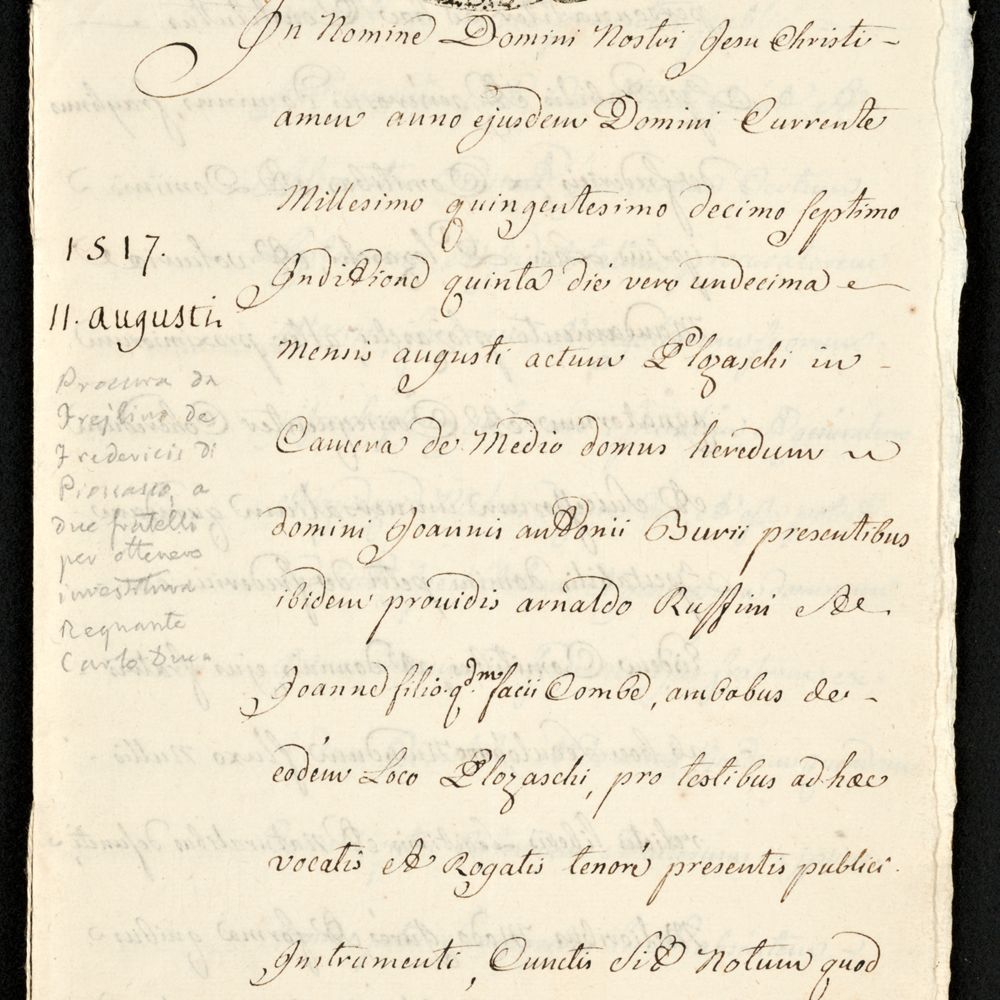 In Nomine Domini Nostri Jesu Christi -
amen anno ejusdem Domini Currente
Millesimo quingentesimo decimo septimo
1517.
Indictione quinta die vero undecima
11. augusti
Mensis augusti actum Plozaschi in -
Camera de Medio domus heredum
domini Joannis antonii Burii presentibus
ibidem providis arnaldo Ruffini et
Joanne filio qdm. facii Combe, ambobus de -
eodem Loco Plozaschi, pro testibus ad hæc
vocatis et Rogatis tenore presentis publici
Instrumenti, Cunctis sit Notum quod
Procura da
Frejlino de
Fredericis di
Piossasco, a
due fratelli
per ottenere
investitura
Regnante
Carlo Duca